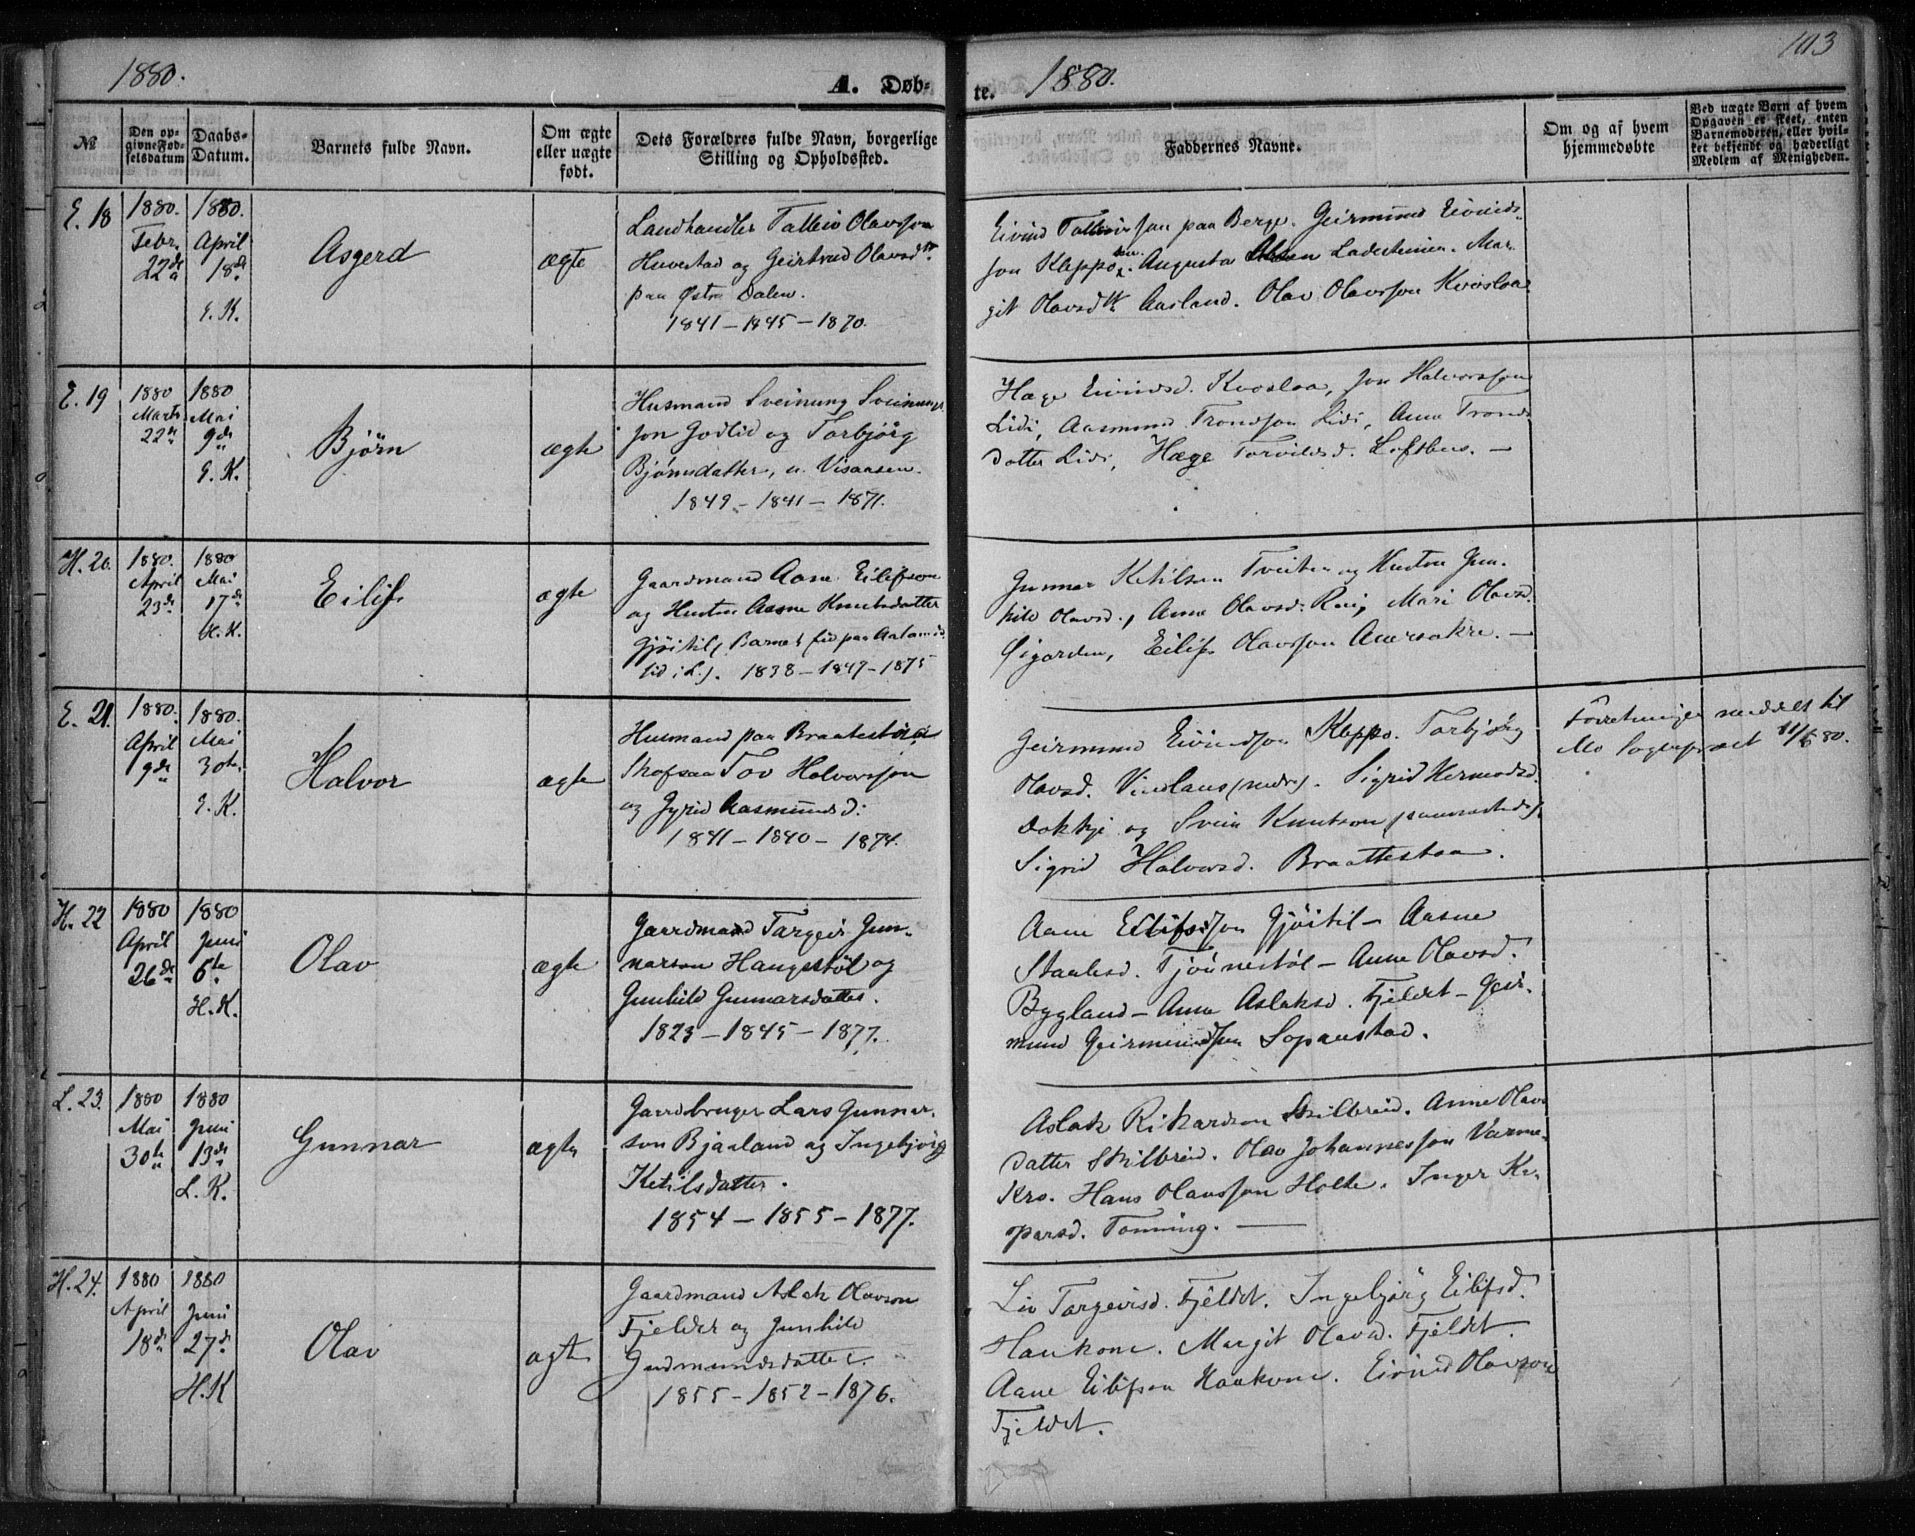 1880.
A. Døb-
te. 1880.
103
№
Den op-
givne Fød-
selsdatum
Daabs-
Datum.
Barnets fulde Navn.
Om ægte
eller uægte
født.
Dets Forældres fulde Navn, borgerlige
Stilling og Opholdssted.
Faddernes Navne.
Om og af hvem
hjemmedøbte
Ved uægte Børn af hvem
Opgaven er skeet, enten
Barnemoderen, eller hvil-
ket bekjendt og hæderligt
Medlem af Menigheden.
E. 18
1880.
Febr.
22de
1880.
April
18de
E. K.
Asgerd
ægte
Landhandler Talleiv Olavsson
Huvestad og Geirtrud Olavsdtr.
paa Østre Dalen.
1841 – 1845 – 1870.
Eivind Talleivsson paa Berge. Geirmund Eivinds-
son Kleppo. Augusta Ladesteinen. Mar-
git Olavsdtr. Aasland. Olav Olavsson Kvoslaa
E. 19
1880
Marts
22n
1880
Mai
9de
E. K.
Bjørn
ægte
Husmand Sveinung Sveinungs-
son Godlid og Torbjørg
Bjørnsdatter, u. Visaasen.
1849 – 1841 – 1871.
Hæge Eivindsd. Kvoslaa, Jon Halvorsson
Lidi, Aasmund Trondson Lidi, Anne Tronds-
datter Lidi, Hæge Torvildsd. Loftbus. –
H. 20.
1880.
April
23de
1880
Mai
17de
H. K.
Eilif.
ægte
Gaardmand Aane Eilifson
og Hustru Aasne Knutsdatter
Gjøitil, (Barnet fød paa Aalamds-
lid i L.). 1838 – 1847 – 1875
Gunnar Ketilsen Tveiten og Hustru Gun-
hild Olavsd., Anne Olavsd. Rui, Mari Olavsd.
Øigarden, Eilif Olavsson Aaersakre. –
E. 21.
1880.
April
9de
1880.
Mai
30te
E. K.
Halvor
ægte
Husmand paa Braatestøa i
Skofsaa Tov Halvorsson
og Gyrid Aasmundsd:
1841 – 1840 – 1874.
Geirmund Eivindson Kleppo. Torbjørg
Olavsd. Vindlaus (nedre). Sigrid Hermodsd.
Dokkje og Svein Knutson (sammesteds)
Sigrid Halvorsd. Braattestaa.
Forretningen meddelt til
Mo Sogneprest 11/6 80.
H. 22
1880
April
26de
1880
Juni
6te
H. K.
Olav
ægte
Gaardmand Targei Gun-
narson Haugestøl og
Gunhild Gunnarsdatter.
1823 – 1845 – 1877.
Aane Eilifsson Gjøitil – Aasne
Staalesd. Tjønnestøl – Anne Olavsd.
Bygland – Anne Aslaksd. Fjeldet – Geir-
mund Geirmundsson Sopanstad.
L. 23.
1880
Mai
30te
1880
Juni
13de
L. K.
Gunnar
ægte
Gaardbruger Lars Gunnar-
son Bjaaland og Ingebjørg
Ketilsdatter.
1854 – 1855 – 1877.
Aslak Rikardson Skilbreid. Anne Olavs-
datter Skilbreid. Olav Johannesson Varme-
Kro. Hans Olavsson Holte. Inger Ka-
parsd. Tonning. –
H. 24.
1880
April
18de
1880
Juni
27de
H. K
Olav
ægte
Gaardmand Aslak Olavson
Fjeldet og Gunhild
Gudmundsdatter.
1855 – 1852 – 1876.
Liv Targeirsd. Fjeldet. Ingebjørg Eilifsd.
Haukom. Margit Olavsd. Fjeldet.
Aane Eilifson Haukom. Eivind Olavson
Fjeldet.